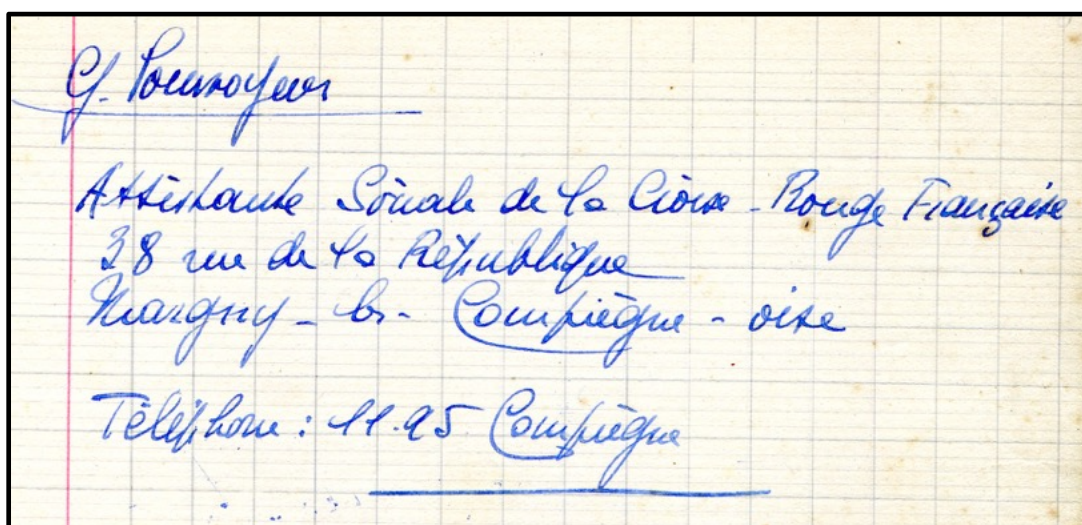 G. Pourvoyeur
Assistante Sociale de la Croix-Rouge Française
38 rue de la République
Margny-les-Compiègne-oise
Téléphone : 11.95 Compiègne